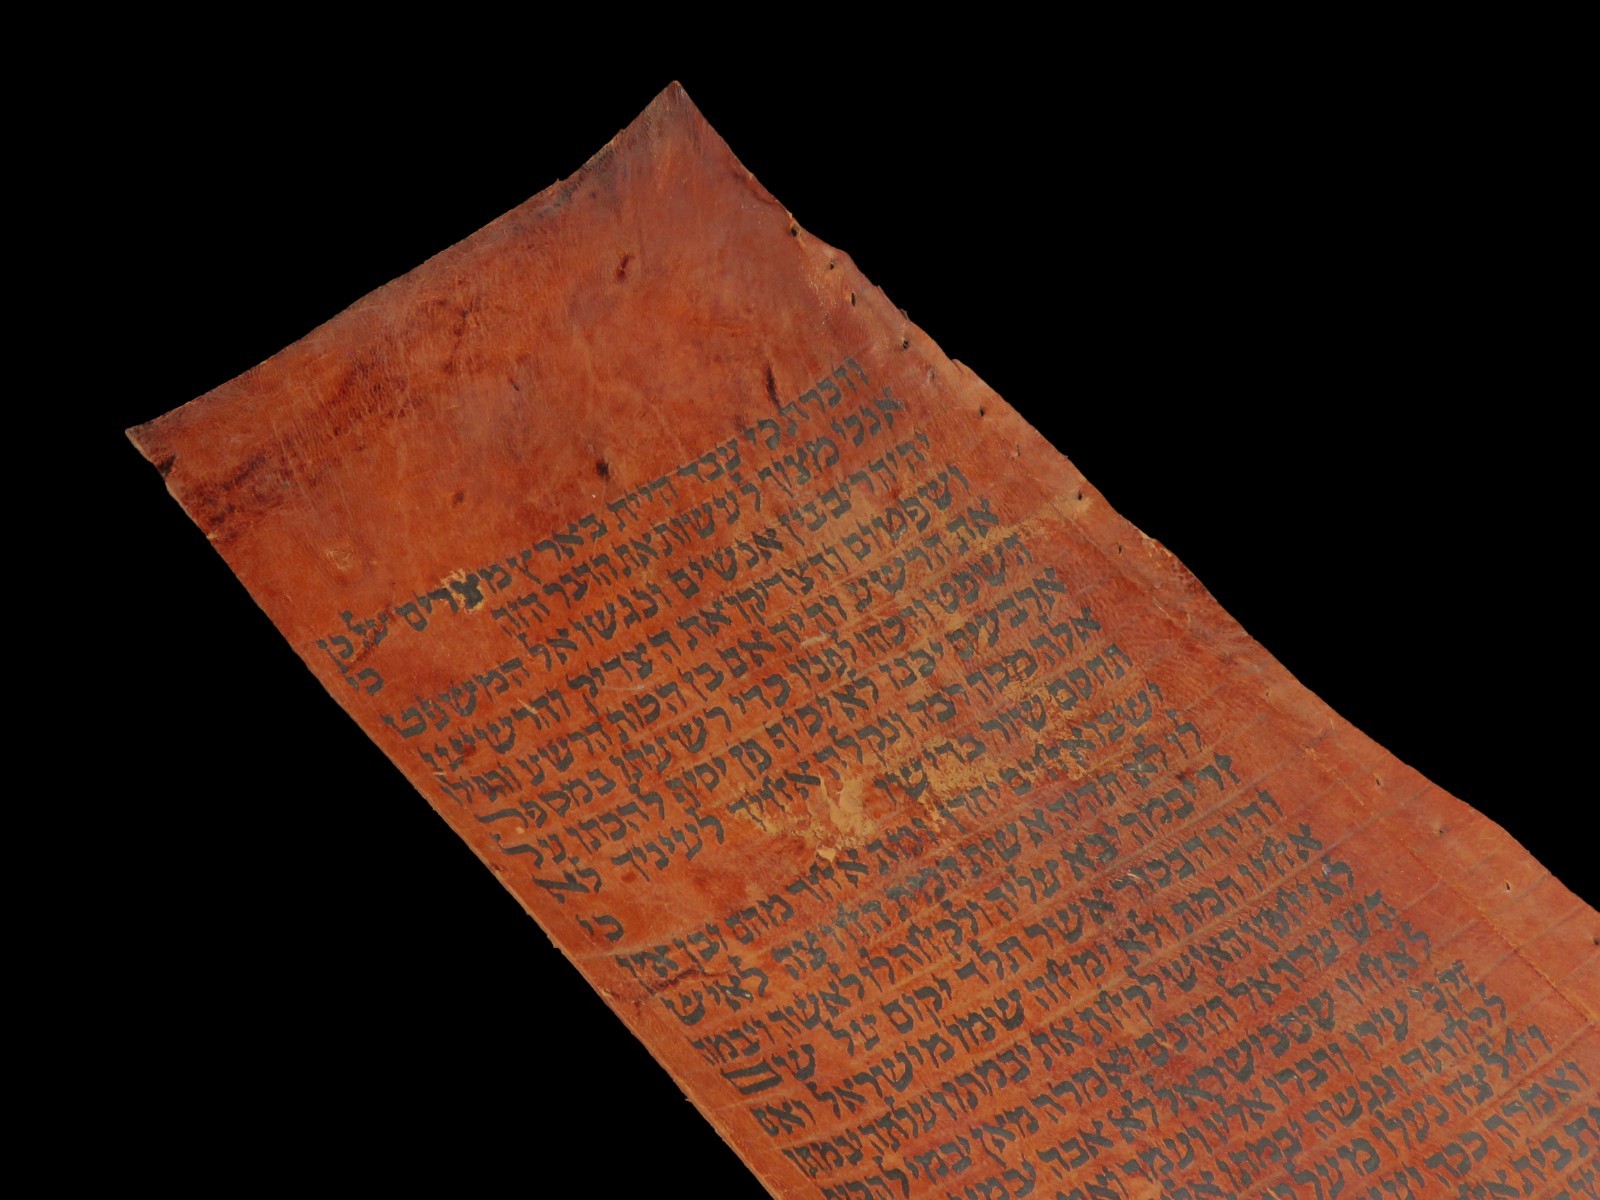 וזכרת כי עבד היית בארץ מצרים על כן
אנכי מצוך לעשות את הדבר הזה כי
יהיה ריב בין אנשים ונגשו אל המשפט
ושפטום והצדיקו את הצדיק והרשיעו
את הרשע והיה אם בן הכות הרשע והפילו
השפט והכהו לפניו כדי רשעתו במספר
ארבעים יכנו לא יסיף פן יסיף להכתו על
אלה מכה רבה ונקלה אחיך לעיניך לא
תחסם שור בדישו כי
ישבו אחים יחדו ומת אחד מהם ובן אין
לו לא תהיה אשת המת החוצה לאיש
זר יבמה יבא עליה ולקחה לו לאשה ויבמה
והיה הבכור אשר תלד יקום על שם
אחיו המת ולא ימחה שמו מישראל ואם
לא יחפץ האיש לקחת את יבמתו ועלתה יבמתו
השערה אל הזקנים ואמרה מאן יבמי להקים
לאחיו שם בישראל לא אבה יבמי
זקני עירו ודברו אליו ועמד ואמר
לקחתה ונגשה יבמתו אליו
וחלצה נעלו מעל
ואמרה ככה
בית